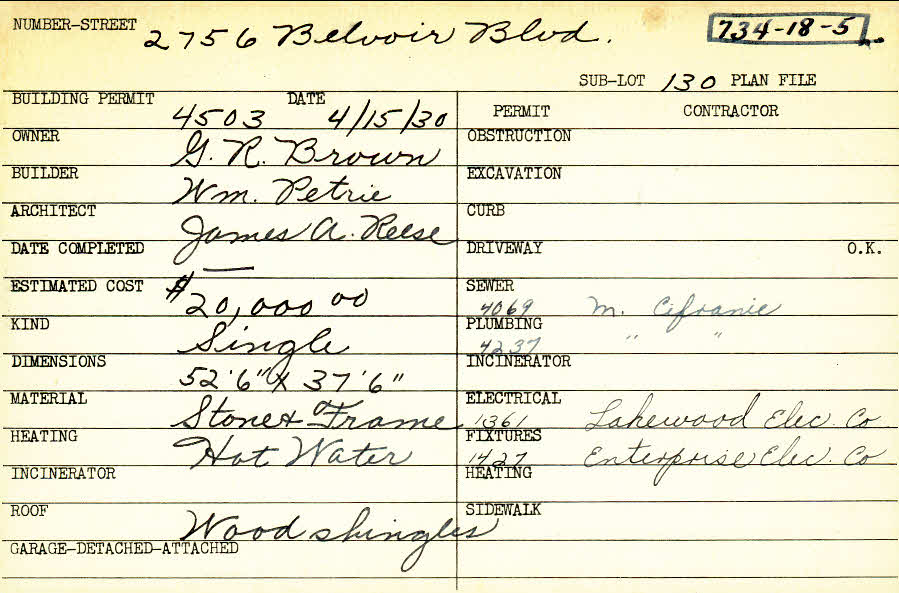 NUMBER-STREET 2756 Belvoir Blvd. 734-18-5
SUB-LOT 130 PLAN FILE
BUILDING PERMIT 4503 DATE 4/15/30
PERMIT CONTRACTOR
OWNER G. R. Brown
OBSTRUCTION
BUILDER Wm. Petrie
EXCAVATION
ARCHITECT James A. Reese
CURB
DATE COMPLETED —
DRIVEWAY O.K.
ESTIMATED COST $20,000 00
SEWER 4069 M. Cifranic
KIND Single
PLUMBING 4237 " "
DIMENSIONS 52'6" X 37'6"
INCINERATOR
MATERIAL Stone & Frame
ELECTRICAL 1361 Lakewood Elec. Co
HEATING Hot Water
FIXTURES 1427 Enterprise Elec. Co
INCINERATOR
HEATING
ROOF Wood shingles
SIDEWALK
GARAGE-DETACHED-ATTACHED